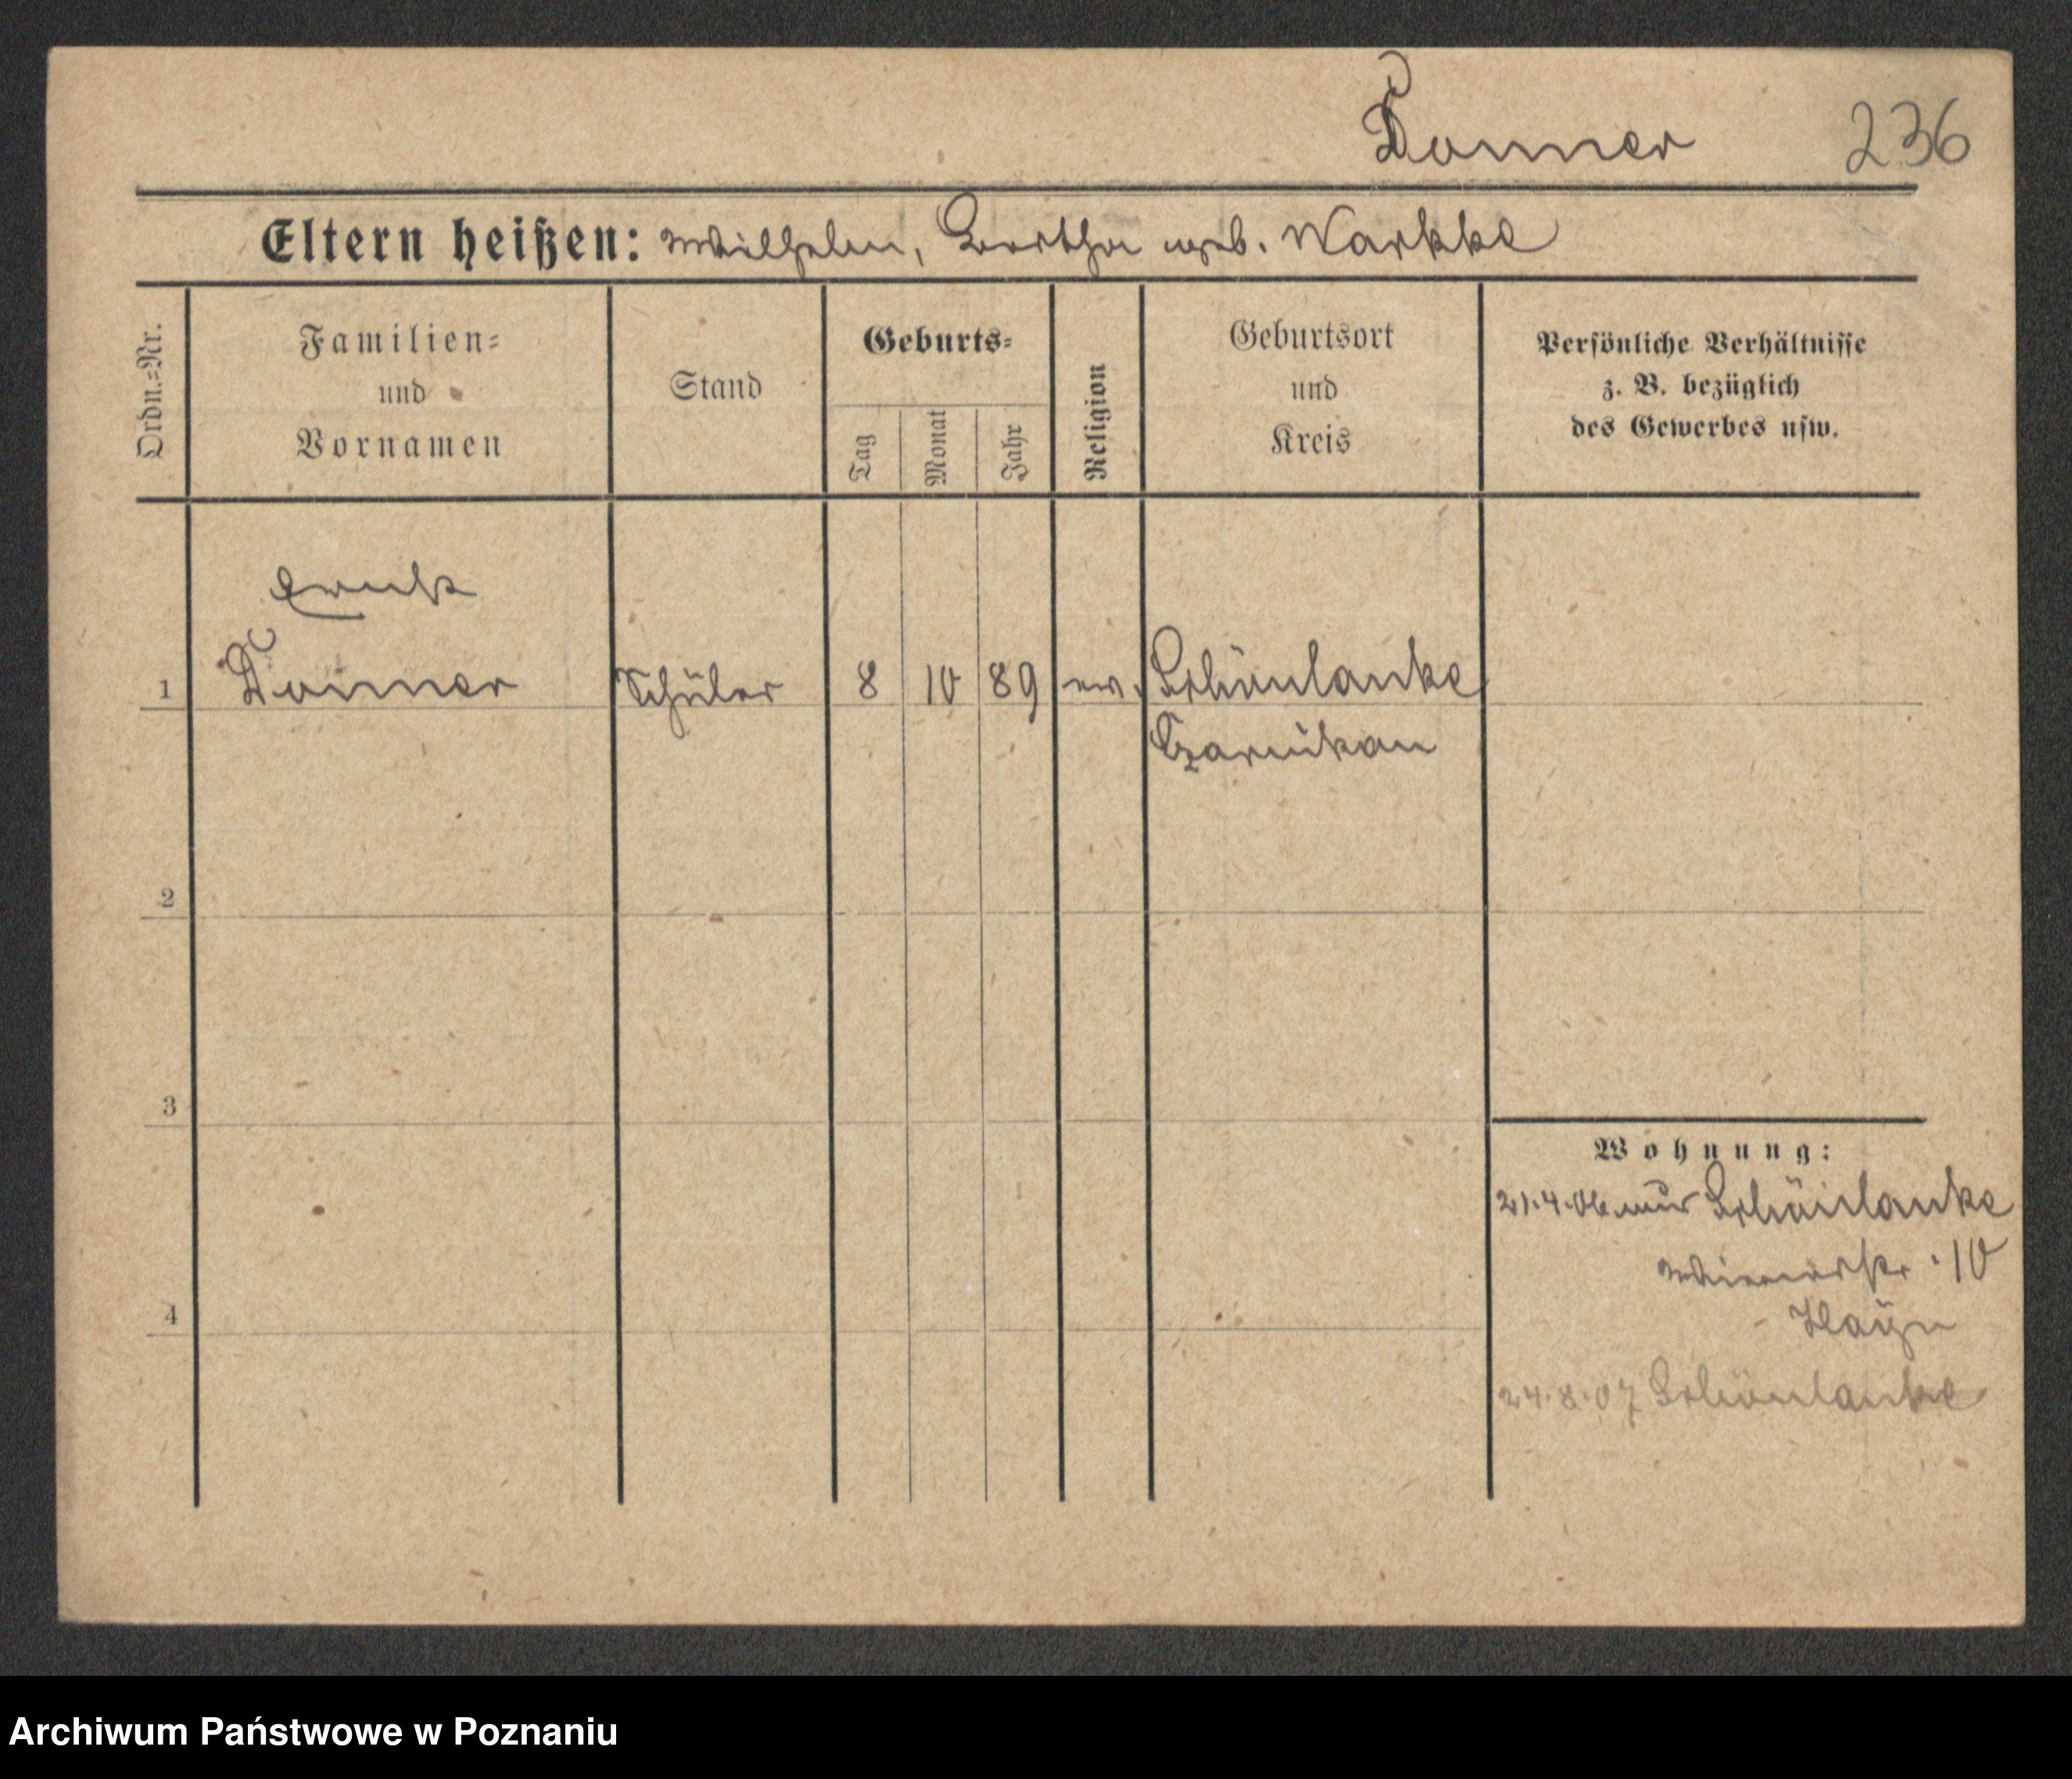 Donner 236
Eltern heißen: Wilhelm, Bertha geb. Warkke
Ordn.-Nr.
Familien-
und
Vornamen
Stand
Geburts-
Tag
Monat
Jahr
Religion
Geburtsort
und
Kreis
Persönliche Verhältnisse
z. B. bezüglich
des Gewerbes usw.
Ernst
1 Donner Schüler 8 10 89 ev. Schönlanke
Czarnikau
2
3
4
Wohnung:
21.4.06 Schönlanke
10
24.8.07 Schönlanke
Archiwum Państwowe w Poznaniu